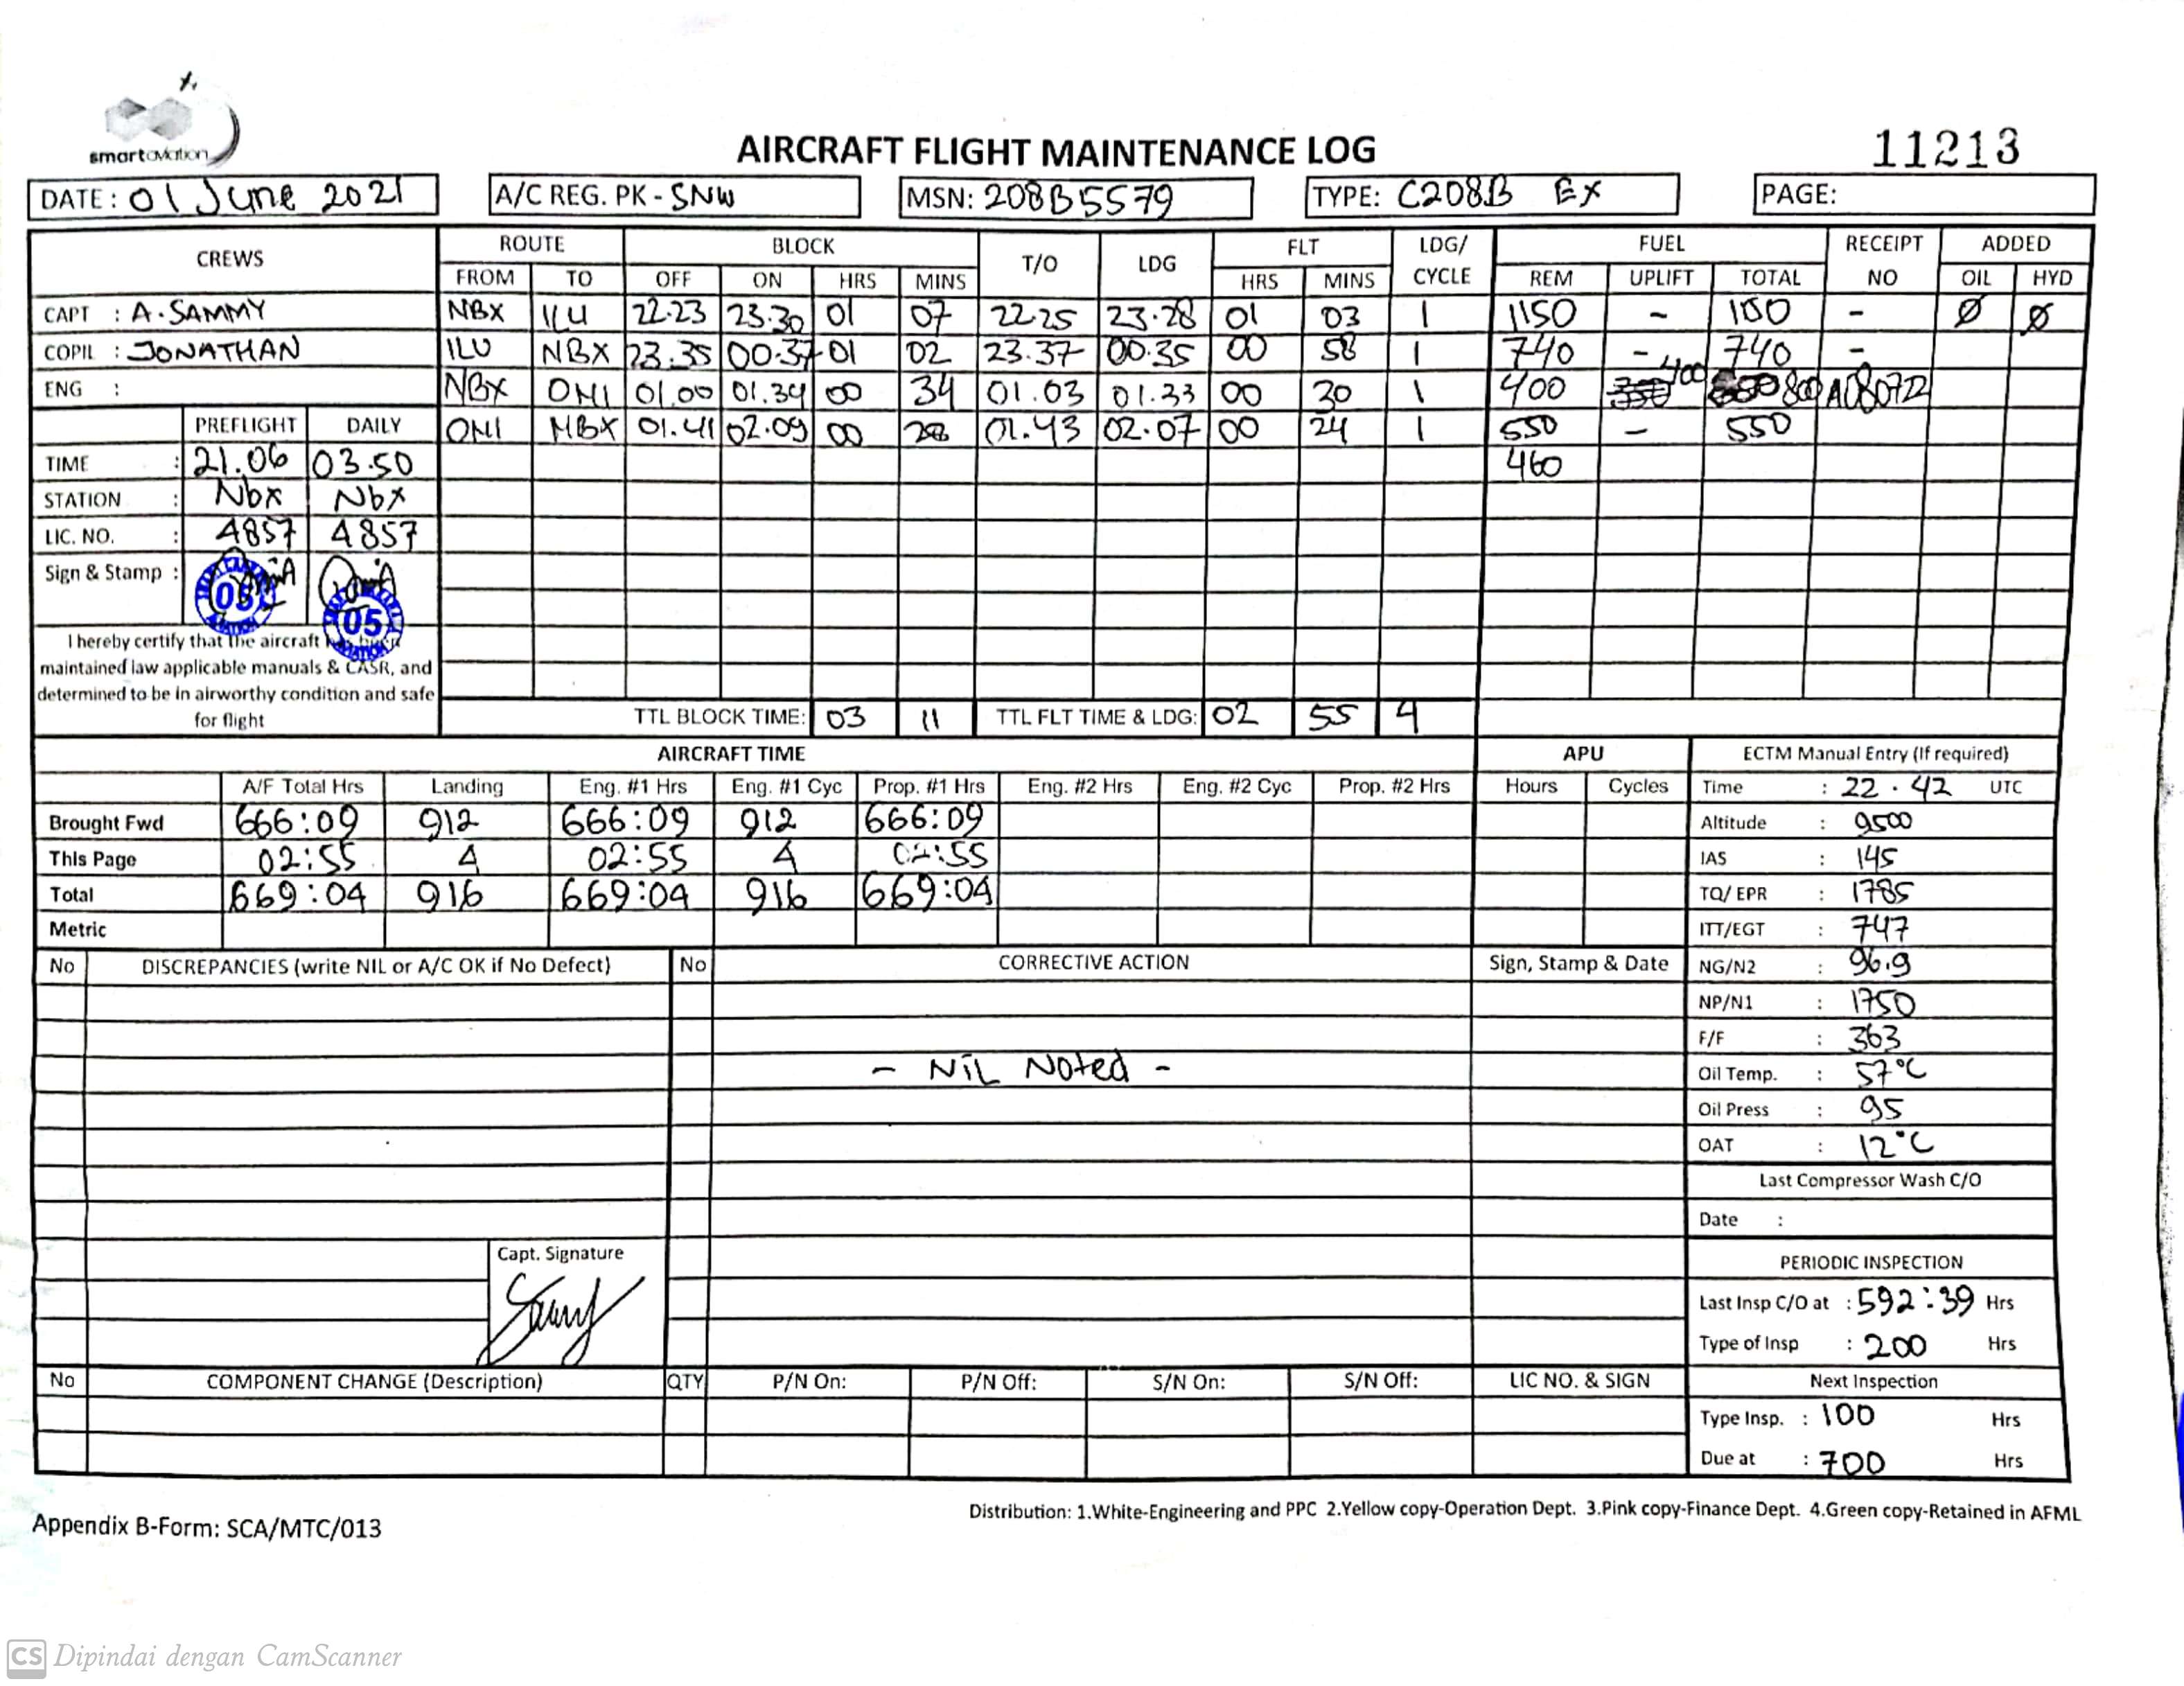 smartaviation
AIRCRAFT FLIGHT MAINTENANCE LOG
11213
DATE: 01 June 2021 A/C REG. PK - SNW MSN: 208B5579 TYPE: C208B EX PAGE:
CREWS ROUTE BLOCK T/O LDG FLT LDG/ FUEL RECEIPT ADDED
FROM TO OFF ON HRS MINS HRS MINS CYCLE REM UPLIFT TOTAL NO OIL HYD
CAPT : A. SAMMY NBX ILU 22.23 23.30 01 07 22.25 23.28 01 03 1 1150 - - Ø Ø
COPIL : JONATHAN ILU NBX 23.35 00.37 01 02 23.37 00.35 00 58 1 740 - 740 -
ENG : NBX ONI 01.00 01.34 00 34 01.03 01.33 00 30 1 400 400 800
ONI NBX 01.41 02.09 00 28 01.43 02.07 00 24 1 550 - 550
460
PREFLIGHT DAILY
TIME : 21.06 03.50
STATION : Nbx Nbx
LIC. NO. : 4857 4857
Sign & Stamp :
05 05
I hereby certify that the aircraft has been
maintained law applicable manuals & CASR, and
determined to be in airworthy condition and safe
for flight
TTL BLOCK TIME: 03 11 TTL FLT TIME & LDG: 02 55 4
AIRCRAFT TIME APU ECTM Manual Entry (If required)
A/F Total Hrs Landing Eng. #1 Hrs Eng. #1 Cyc Prop. #1 Hrs Eng. #2 Hrs Eng. #2 Cyc Prop. #2 Hrs Hours Cycles
Brought Fwd 666:09 912 666:09 912 666:09
This Page 02:55 4 02:55 4 02:55
Total 669:04 916 669:04 916 669:04
Metric
Time : 22.42 UTC
Altitude : 9500
IAS : 145
TQ/ EPR : 1785
ITT/EGT : 747
NG/N2 : 96.9
NP/N1 : 1750
F/F : 363
Oil Temp. : 57°C
Oil Press : 95
OAT : 12°C
Last Compressor Wash C/O
Date :
PERIODIC INSPECTION
Last Insp C/O at : 592:39 Hrs
Type of Insp : 200 Hrs
Next Inspection
Type Insp. : 100 Hrs
Due at : 700 Hrs
No DISCREPANCIES (write NIL or A/C OK if No Defect) No CORRECTIVE ACTION Sign, Stamp & Date
- NiL Noted -
Capt. Signature
No COMPONENT CHANGE (Description) QTY P/N On: P/N Off: S/N On: S/N Off: LIC NO. & SIGN
Distribution: 1.White-Engineering and PPC 2.Yellow copy-Operation Dept. 3.Pink copy-Finance Dept. 4.Green copy-Retained in AFML
Appendix B-Form: SCA/MTC/013
CS Dipindai dengan CamScanner